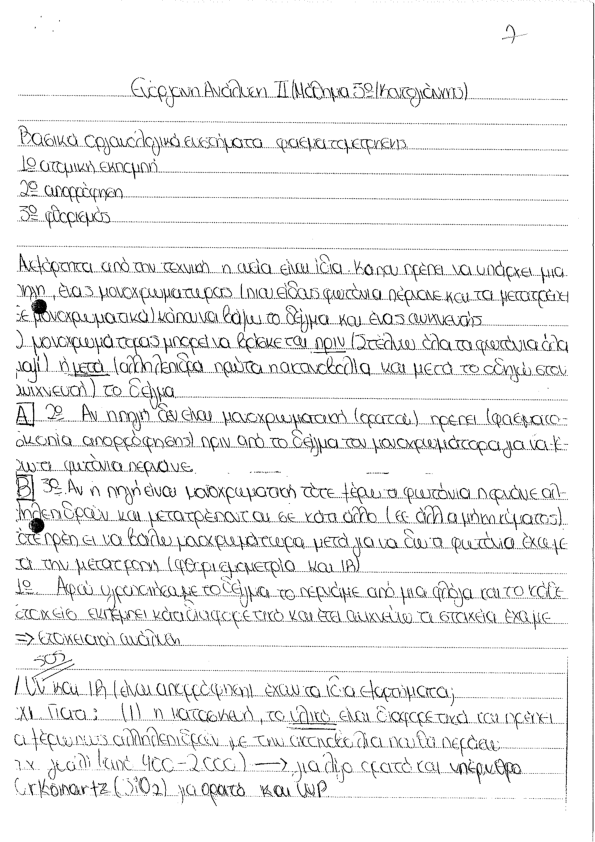 7
Ενόργανη Ανάλυση II (Μάθημα 5º)(Κοντογιάννης)
Βασικά οργανολογικά συστήματα φασματομετρησης
1º ατομική εκπομπή
2º απορρόφηση
3º φθορισμός
Ανεξάρτητα από την τεχνική η ουσία είναι ίδια. Κάπου πρέπει να υπάρχει μια
πηγή, ένας μονοχρωματορας (τι είδους φωτόνια πέρνουμε και τα μετατρέπει
σε μονοχρωματικά) κάπου να βάλω το δείγμα και ένας ανιχνευτής
) μονοχρωμάτορας μπορεί να βρίσκεται πριν (στέλνω όλα τα φωτόνια όλα
μαζί) ή μετά (αλληλεπιδρά πρώτα η ακτινοβολία και μετά το οδηγώ στον
ανιχνευτή) το δείγμα
A 2º Αν η πηγή δεν είναι μονοχρωματική (ορατού) πρέπει (φασματο-
σκοπία απορρόφησης) πριν από το δείγμα τον μονοχρωμάτορα για να κ-
φωτόνια περνάνε
B 3º. Αν η πηγή είναι μονοχρωματική τότε ξέρω τι φωτόνια περνάνε αλ-
ληλεπιδρούν και μετατρέπονται σε κάτι άλλο (σε άλλα μήκη κύματος)
ότε πρέπει να βάλω μονοχρωμάτωρα μετά για να δω τι φωτόνια έχω με
τά την μετατροπή (φθορισμομετρία και IR)
1º. Αφού υγροποιήσουμε το δείγμα το περνάμε από μια φλόγα και το κάθε
στοιχείο εκπέμπει κάτι διαφορετικό και έτσι ανιχνεύω τι στοιχεία έχουμε
=> στοιχειακή ανάλυση
SOS
UV και IR (είναι απορρόφηση) έχουν τα ίδια εξαρτήματα;
χι Γιατί; (1) η κατασκευή, το υλικό είναι διαφορετικό και πρέπει
να ξέρω πως αλληλεπιδρούν με την ακτινοβολία που θα περάσει
π.χ. γυαλί (από 400-2000) → για λίγο ορατό και υπέρυθρο
(SiO2) για ορατό και UVP